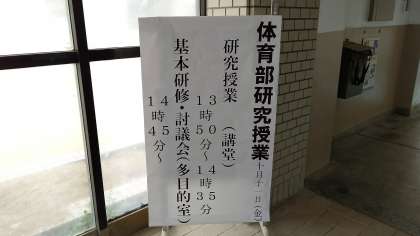 体育部研究授業 十月十一日(金)
研究授業 (講堂)
13時50分~14時35分
基本研修・討議会(多目的室)
14時45分~